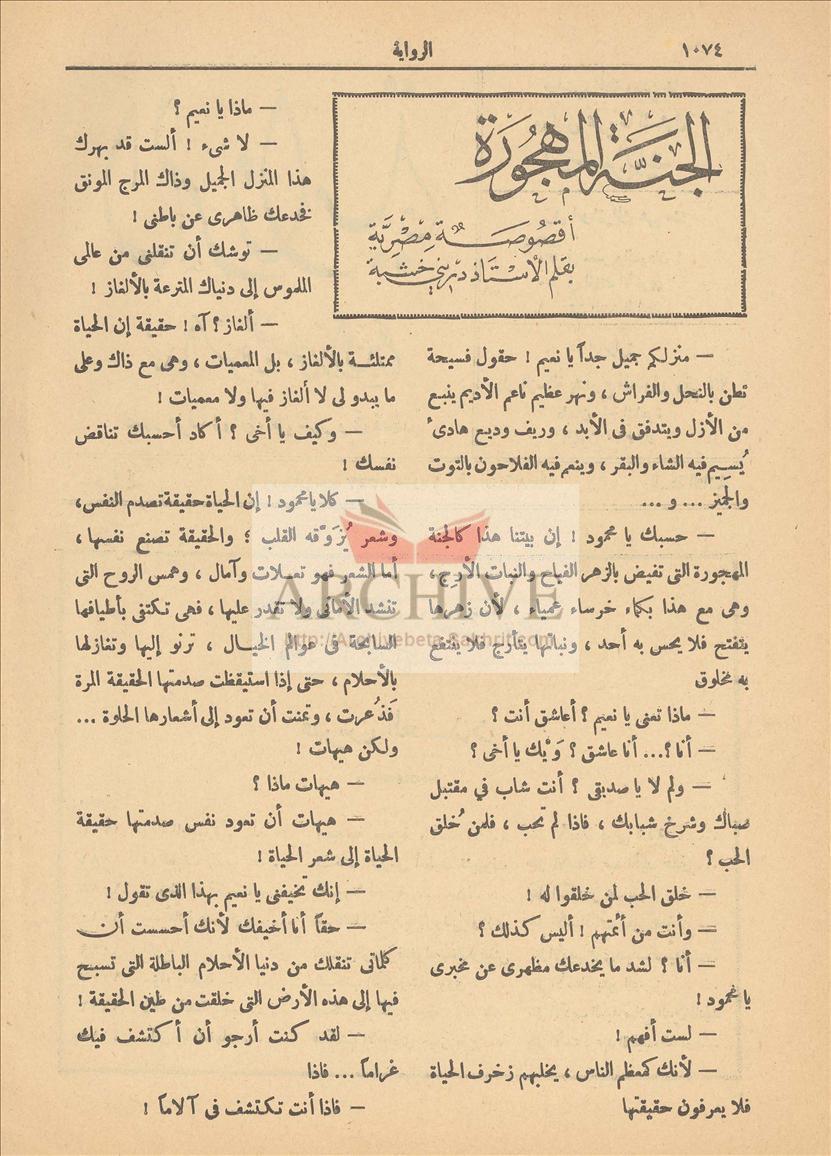 ١٠٧٤
الرواية
الجنة المهجورة
أقصوصة مصرية
بقلم الأستاذ دريني خشبة
— منزلكم جميل جداً يا نعيم ! حقول فسيحة
تطن بالنحل والفراش ، ونهر عظيم ناعم الأديم ينبع
من الأزل ويتدفق فى الأبد ، وريف وديع هادىء
يُسيم فيه الشاء والبقر ، وينعم فيه الفلاحون بالتوت
والجميز ... و ...
— حسبك يا محمود ! إن بيتنا هذا كالجنة
المهجورة التى تفيض بالزهر الفياح والنبات الأرِج ،
وهى مع هذا بكماء خرساء عمياء ، لأن زهرها
يتفتح فلا يحس به أحد ، ونباتها يتأرج فلا ينتفع
به مخلوق
— ماذا تعنى يا نعيم ؟ أعاشق أنت ؟
— أنا ؟... أنا عاشق ؟ وَيْك يا أخى ؟
— ولم لا يا صديقى ؟ أنت شاب في مقتبل
صباك وشرخ شبابك ، فاذا لم تحب ، فلمن خُلق
الحب ؟
— خلق الحب لمن خلقوا له !
— وأنت من أئمتهم ! أليس كذلك ؟
— أنا ؟ لشد ما يخدعك مظهرى عن مخبرى
يا محمود !
— لست أفهم !
— لأنك كمعظم الناس ، يخلبهم زخرف الحياة
فلا يعرفون حقيقتها
— ماذا يا نعيم ؟
— لا شىء ! ألست قد بهرك
هذا المنزل الجميل وذاك المرج المونق
فخدعك ظاهرى عن باطنى !
— توشك أن تنقلنى من عالمى
الملموس إلى دنياك المترعة بالألغاز !
— ألغاز ؟ آه ! حقيقة إن الحياة
ممتلئة بالألغاز ، بل المعميات ، وهى مع ذاك وعلى
ما يبدو لى لا ألغاز فيها ولا معميات !
— وكيف يا أخى ؟ أكاد أحسبك تناقض
نفسك !
— كلا يا محمود ! إن الحياة حقيقة تصدم النفس ،
وشعر يُزَوِّقه القلب ؛ والحقيقة تصنع نفسها ،
أما الشعر فهو تعلات وآمال ، وهمس الروح التى
تنشد الأمانى ولا تقدر عليها ، فهى تكتفى بأطيافها
السابحة فى عوالم الخيال ، ترنو إليها وتغازلها
بالأحلام ، حتى إذا استيقظت صدمتها الحقيقة المرة
فَذُعرت ، وتمنت أن تعود إلى أشعارها الحلوة ...
ولكن هيهات !
— هيهات ماذا ؟
— هيهات أن تعود نفس صدمتها حقيقة
الحياة إلى شعر الحياة !
— إنك تخيفنى يا نعيم بهذا الذى تقول !
— حقاً أنا أخيفك لأنك أحسست أن
كلماتى تنقلك من دنيا الأحلام الباطلة التى تسبح
فيها إلى هذه الأرض التى خلقت من طين الحقيقة !
— لقد كنت أرجو أن أكتشف فيك
غراماً ... فاذا
— فاذا أنت تكتشف فى آلاماً !
ARCHIVE
http://Archivebeta.Sakhrit.com